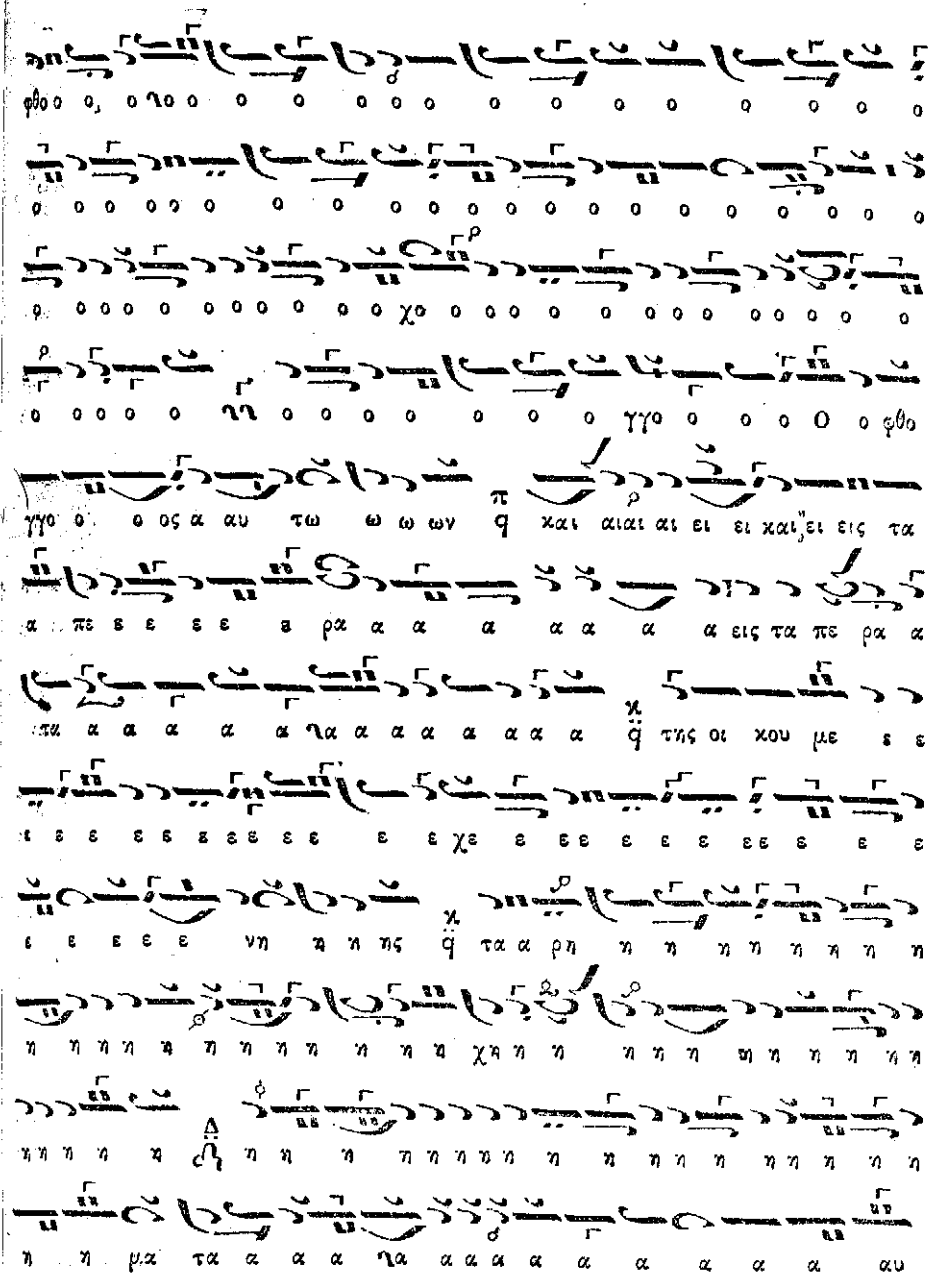 φθο ο ο, ο λο ο ο ο ο ο ο ο ο ο ο ο ο ο
ο ο ο ο ο ο ο ο ο ο ο ο ο ο ο ο ο ο ο ο ο
ο ο ο ο ο ο ο ο ο ο ο ο χο ο ο ο ο ο ο ο ο ο ο ο ο ο ο
ο ο ο ο ο ο ο ο ο ο ο ο ο γγο ο ο ο Ο ο φθο
γγο ο ο ος α αυ τω ω ω ων π q και αι αι αι ει ει και ει εις τα
α πε ε ε ε ε ε ρα α α α α α α α εις τα πε ρα α
τα α α α α α λα α α α α α α α κ q της οι κου με ε ε
ε ε ε ε ε ε ε ε ε ε ε ε χε ε ε ε ε ε ε ε ε ε ε ε
ε ε ε ε ε νη η η ης κ q τα α ρη η η η η η η η
η η η η η η η η η η η η χη η η η η η η η η η η η
η η η η η Δ η η η η η η η η η η η η η η η η η
η η μα τα α α α λα α α α α α α α α α αυ